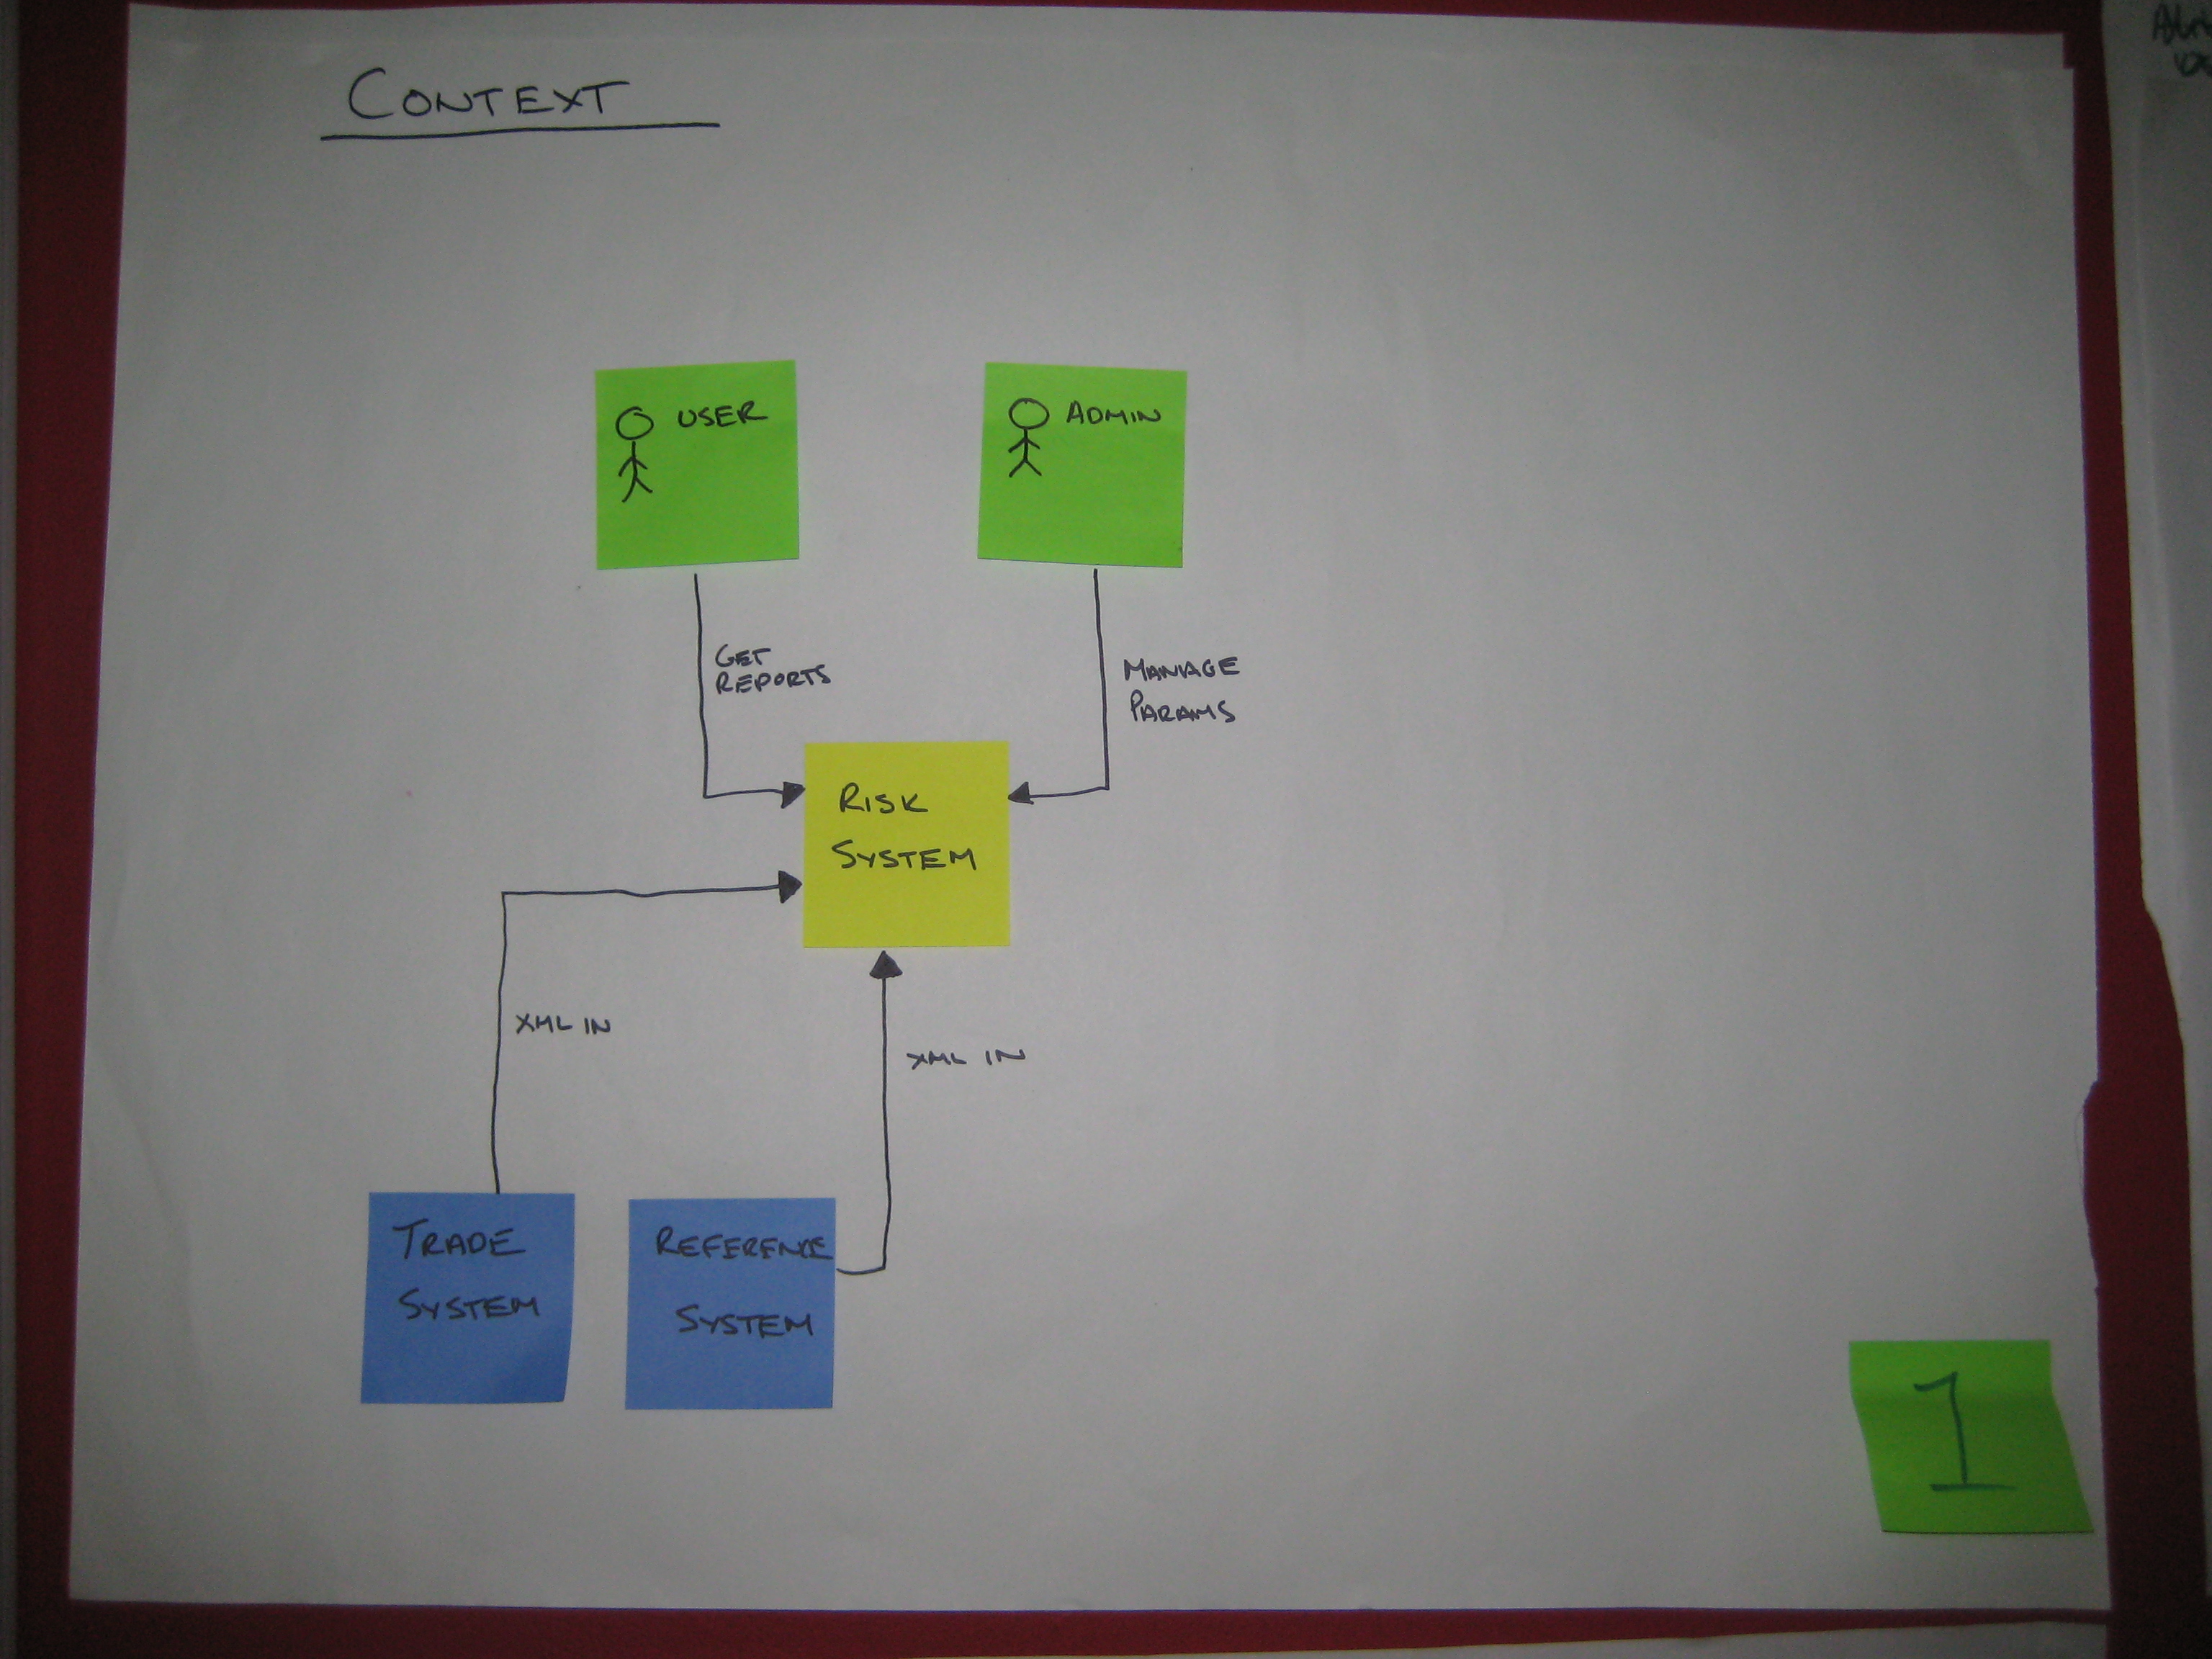 CONTEXT
USER
ADMIN
GET
REPORTS
MANAGE
PARAMS
RISK
SYSTEM
XML IN
XML IN
TRADE
SYSTEM
REFERENCE
SYSTEM
1